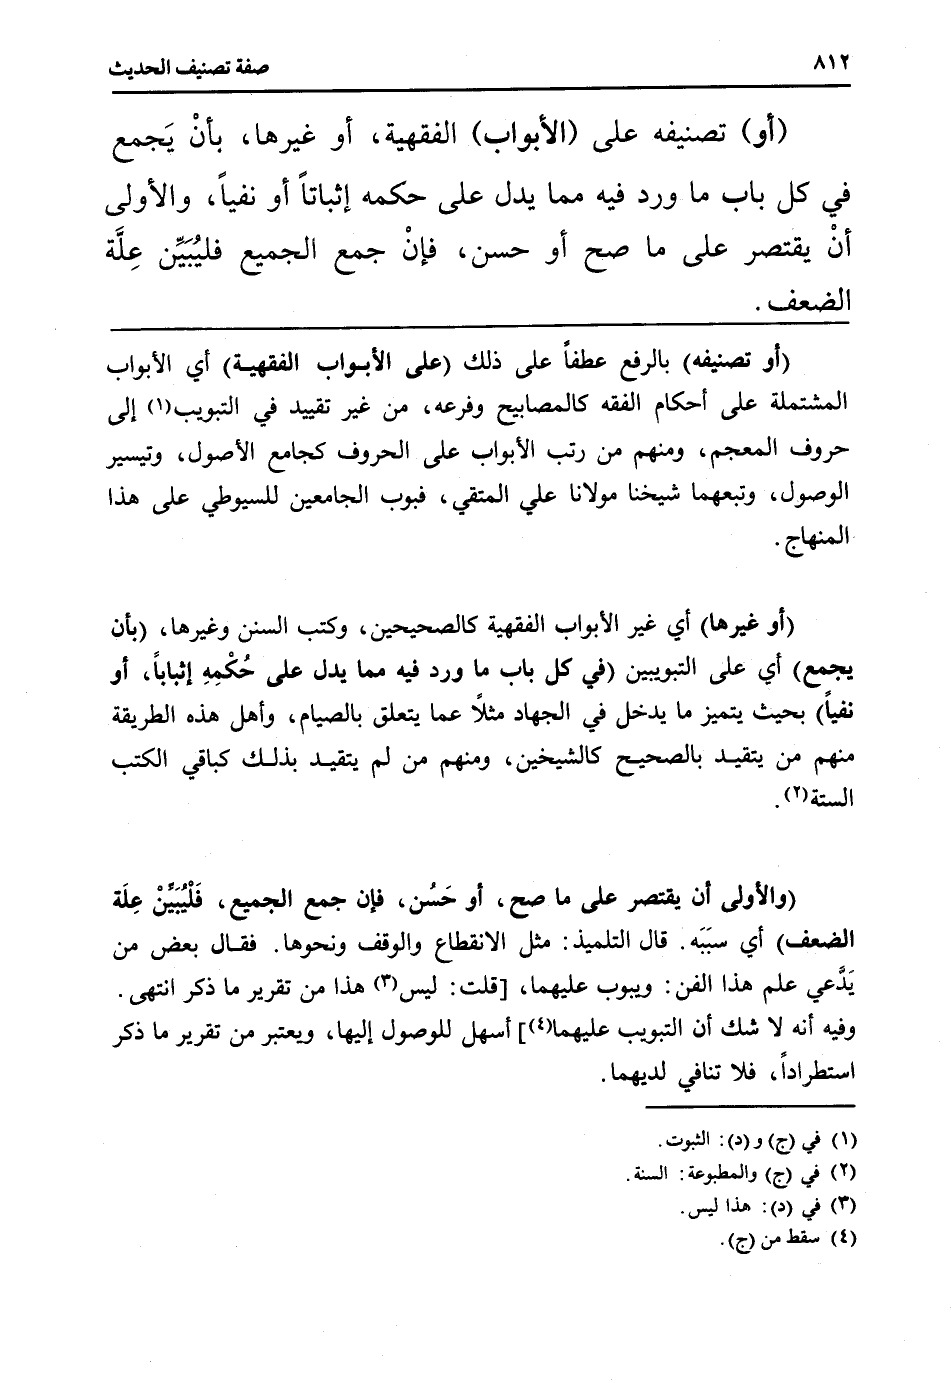 ٨١٢ صفة تصنيف الحديث
(أو) تصنيفه على (الأبواب) الفقهية، أو غيرها، بأنْ يَجمع
في كل باب ما ورد فيه مما يدل على حكمه إثباتاً أو نفياً، والأولى
أنْ يقتصر على ما صح أو حسن، فإنْ جمع الجميع فليُبَيِّن عِلَّة
الضعف.
(أو تصنيفه) بالرفع عطفاً على ذلك (على الأبواب الفقهية) أي الأبواب
المشتملة على أحكام الفقه كالمصابيح وفرعه، من غير تقييد في التبويب(١) إلى
حروف المعجم، ومنهم من رتب الأبواب على الحروف كجامع الأصول، وتيسير
الوصول، وتبعهما شيخنا مولانا علي المتقي، فبوب الجامعين للسيوطي على هذا
المنهاج.
(أو غيرها) أي غير الأبواب الفقهية كالصحيحين، وكتب السنن وغيرها، (بأن
يجمع) أي على التبويبين (في كل باب ما ورد فيه مما يدل على حُكْمِهِ إثباباً، أو
نفياً) بحيث يتميز ما يدخل في الجهاد مثلاً عما يتعلق بالصيام، وأهل هذه الطريقة
منهم من يتقيد بالصحيح كالشيخين، ومنهم من لم يتقيد بذلك كباقي الكتب
الستة(٢).
(والأولى أن يقتصر على ما صح، أو حَسُن، فإن جمع الجميع، فَلْيُبَيِّنْ عِلَة
الضعف) أي سبَبَه. قال التلميذ: مثل الانقطاع والوقف ونحوها. فقال بعض من
يَدَّعي علم هذا الفن: ويبوب عليهما، [قلت: ليس(٣) هذا من تقرير ما ذكر انتهى.
وفيه أنه لا شك أن التبويب عليهما(٤)] أسهل للوصول إليها، ويعتبر من تقرير ما ذكر
استطراداً، فلا تنافي لديهما.
(١) في (ج) و(د): الثبوت.
(٢) في (ج) والمطبوعة: السنة.
(٣) في (د): هذا ليس.
(٤) سقط من (ج).